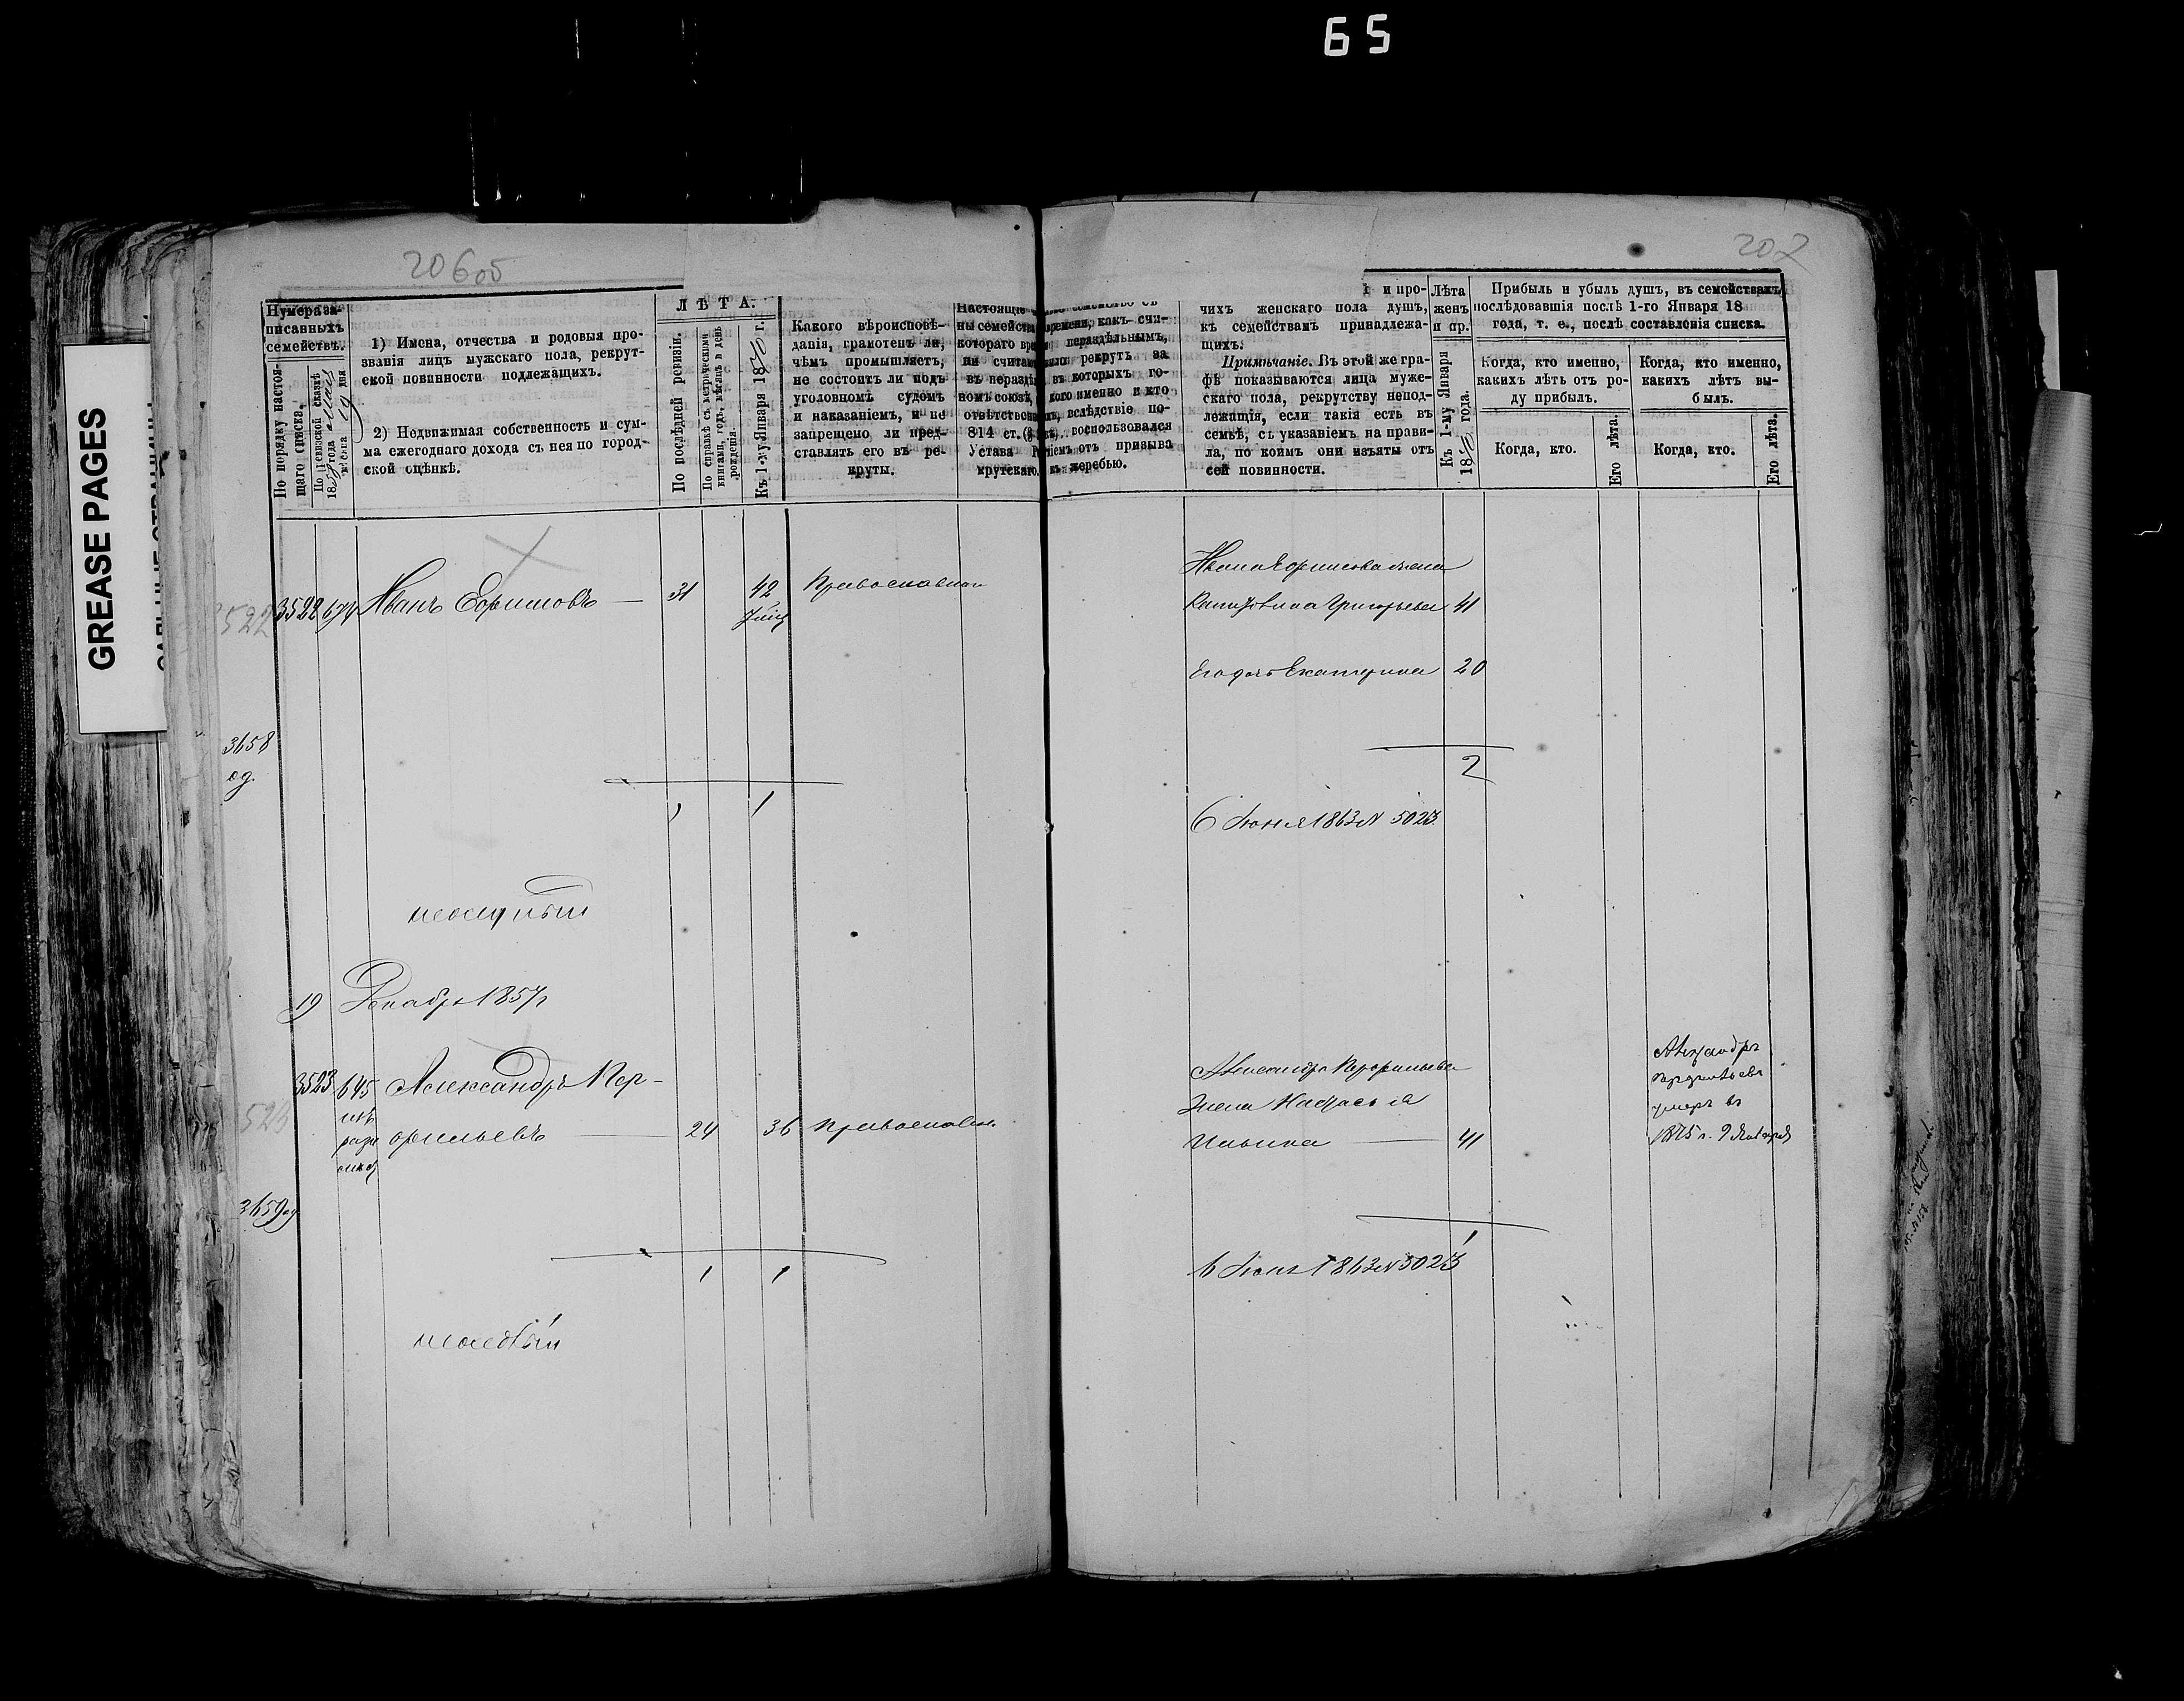 65
GREASE PAGES
206об
207
Нумера за-
писанныхъ
семействъ.
По порядку настоя-
щаго списка.
По ревизской сказкѣ
18 года
19 дня
1) Имена, отчества и родовыя про-
званія лицъ мужскаго пола, рекрут-
ской повинности подлежащихъ.
2) Недвижимая собственность и сум-
ма ежегоднаго дохода съ нея по город-
ской оцѣнкѣ.
ЛѢТА.
По послѣдней ревизіи.
По справкѣ съ метрическими
книгами, годъ, мѣсяцъ и день
рожденія.
Къ 1-му Января 1870 г.
Какого вѣроисповѣ-
данія, грамотенъ ли,
чѣмъ промышляетъ,
не состоитъ ли подъ
уголовномъ судомъ
и наказаніемъ, и не
запрещено ли пред-
ставлять его въ ре-
круты.
Настоящіе
ны семейства
котораго
ни считая
въ нераздѣ
номъ союзѣ,
отвѣтствен
814 ст.
Устава
крутскаго.
времени, какъ счи-
нераздѣльнымъ,
рекрутъ за
въ которыхъ го-
кого именно и кто
вслѣдствіе по-
воспользовался
отъ призыва
жеребью.
и про-
чихъ женскаго пола душъ,
къ семействамъ принадлежа-
щихъ.
Примѣчаніе. Въ этой же гра-
фѣ показываются лица муже-
скаго пола, рекрутству непод-
лежащія, если такія есть въ
семьѣ, съ указаніемъ на прави-
ла, по коимъ они изъяты отъ
сей повинности.
Лѣта
женъ
и пр.
Къ 1-му Января
1870 года.
Прибыль и убыль душъ, въ семействахъ
послѣдовавшія послѣ 1-го Января 18
года, т. е., послѣ составленія списка.
Когда, кто именно,
какихъ лѣтъ отъ ро-
ду прибылъ.
Когда, кто именно,
какихъ лѣтъ вы-
былъ.
Когда, кто.
Его лѣта.
Когда, кто.
Его лѣта.
3522 3522 674 Иванъ Ефимовъ — 31 42 Православнаго
Ивана Ефимова жена
Григорьева 41
Его дочь Екатерина 20
3658
од.
1 1
2
6 Іюня 1863 N 5023
19 Декабря 1857г
3523 645 Александръ Пер-
фильевъ — 24 36 Православн.
523
3659 од
1 1
Александра Перфильева
Жена Настасья
Ильина — 41
1
6 Іюня 1863 N 5023
Александръ
Перфильевъ
умеръ въ
1875 г. 9 Января